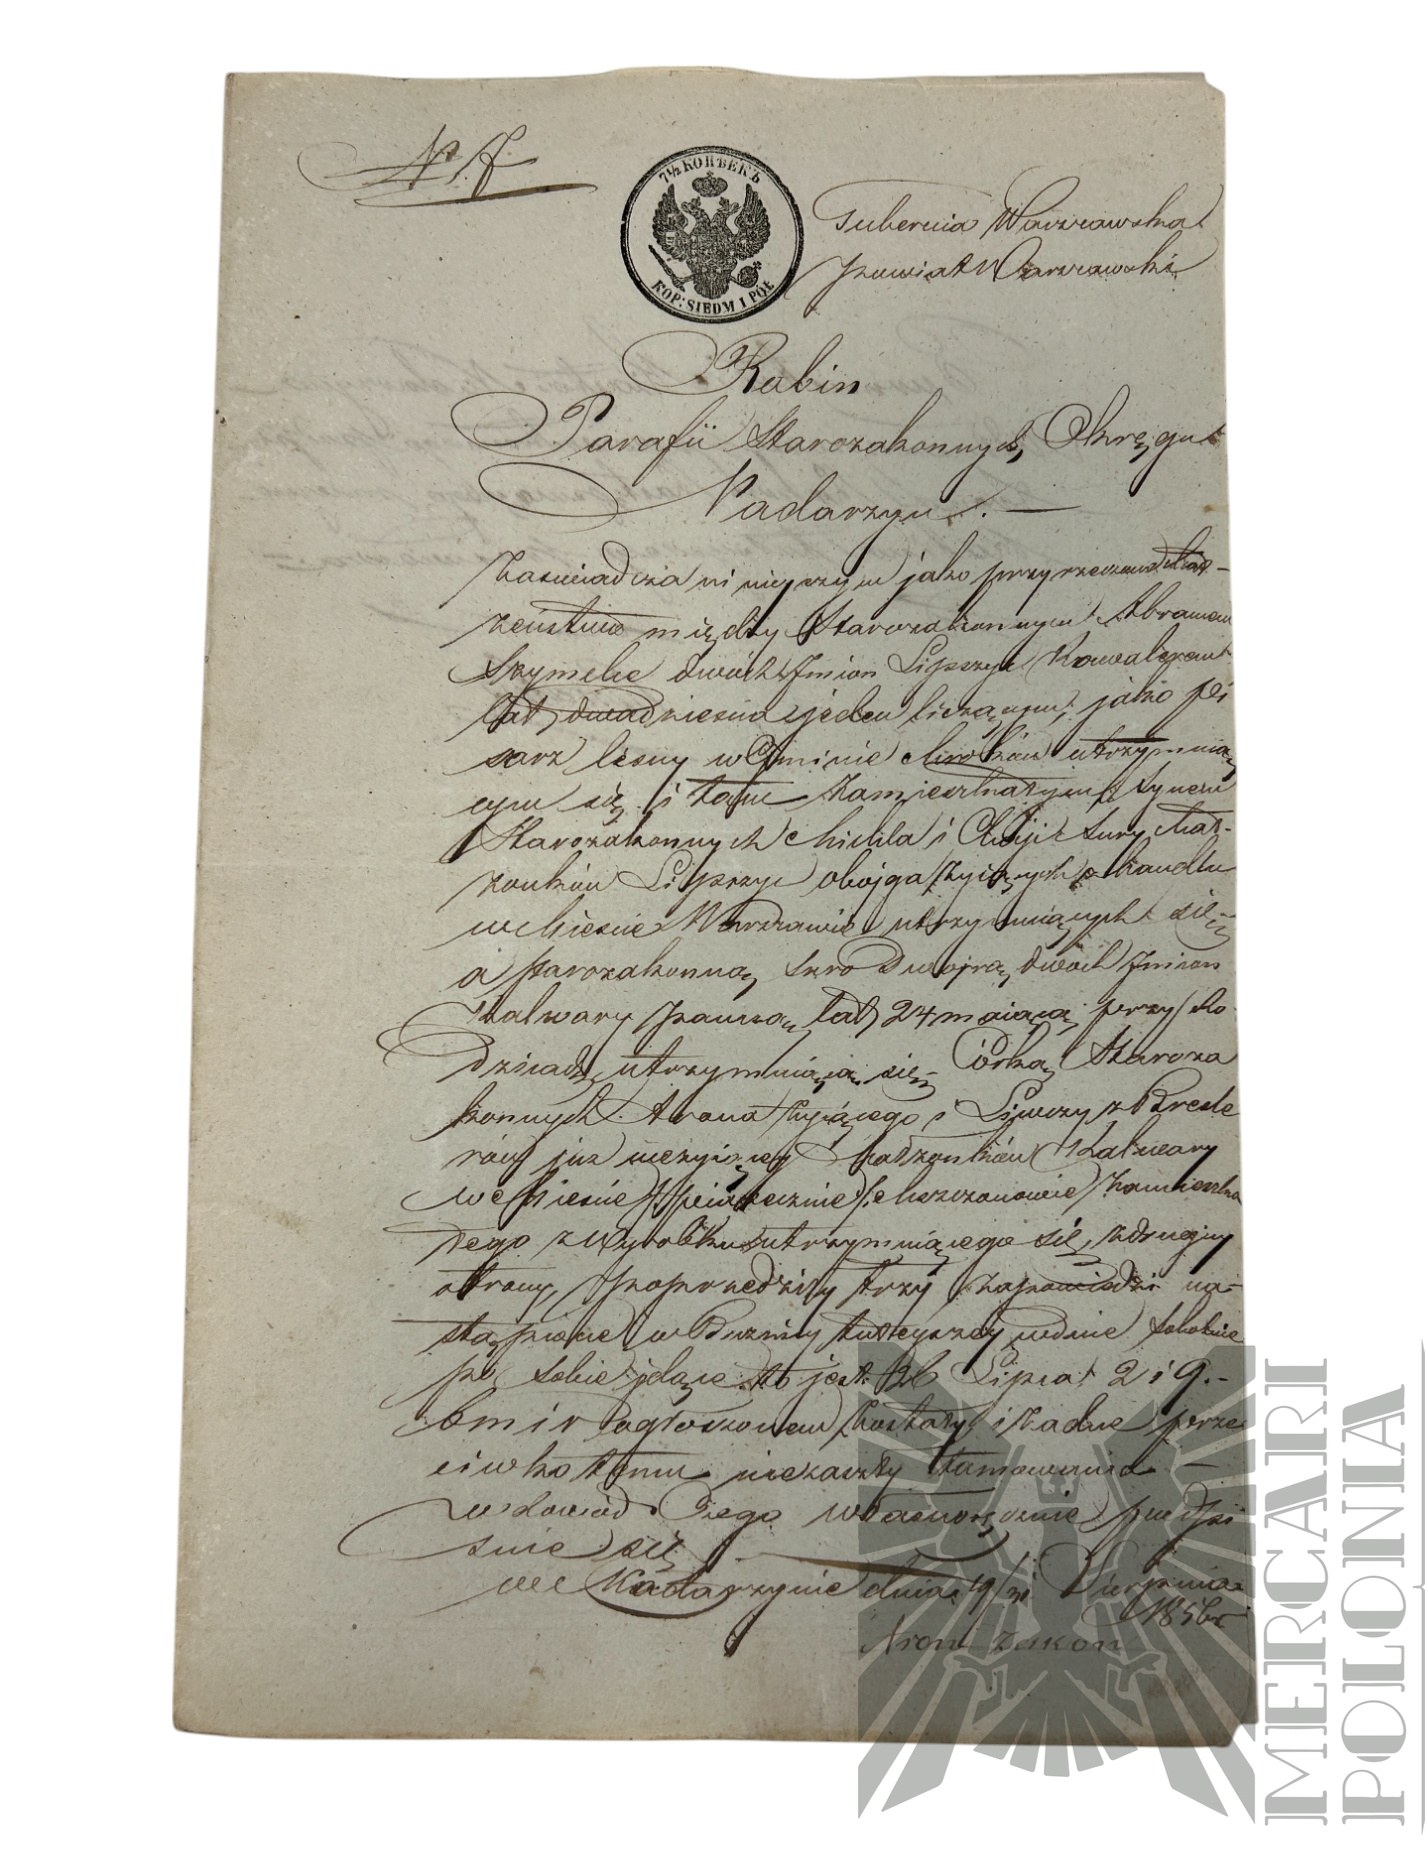 N. A.
7½ КОПѢЕКЪ
KOP: SIEDM I PÓŁ
Gubernia Warszawska
Powiat Warszawski
Rabin
Parafii Starozakonnych Okręgu
Nadarzyn. —
Zaświadcza ninieyszym jako przyrzeczone Mał-
żeństwo między Starozakonnym Abramem
Szymche dwóch Imion Lipszyc Kawalerem
lat dwadzieścia jeden liczącym, jako pi
sarz leśny w Gminie utrzymuią
cym się i tam zamieszkałym, synem
Starozakonnych Michla i Chaji Sury Mał-
żonków Lipszyc obojga żyiących z handlu
w Mieście Warszawie utrzymuiących się
a starozakonną Suro Dwojrą dwóch Imion
Kalwary Panną lat 24 maiącą przy Ro-
dzicach utrzymuiącą się Córką Staroza
konnych Arona żyiącego i z Bresle
rów już nieżyiącey Małżonków Kalwary
w Mieście Mszczonowie zamieszka
łego z Wyrobku utrzymuiącego się, z drugiey
strony, poprzedziły trzy zapowiedzi na-
stąpione w Bużnicy tuteyszey w dnie Sobotnie
po sobie idące to jest 26 Lipca 2 i 9. -
b m i r ogłoszonem zostały i żadne prze
ciwko temu niezaszły tamowania —
w dowód czego własnoręcznie podpi
suie się —
w Nadarzynie dnia 19/31 Sierpnia
1856 r
Aron Zakon
MERCARI
POLONIA